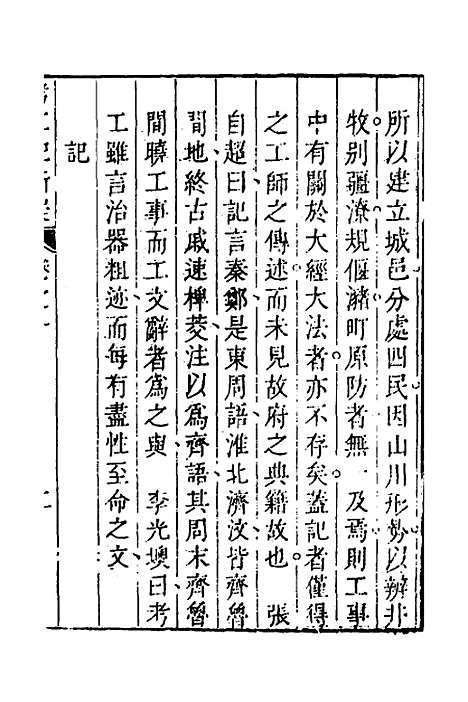 所以建立城邑分處四民因山川形勢以辨井
牧別疆潦規偃豬町原防者無一及焉則工事
中有關於大經大法者亦不存矣蓋記者僅得
之工師之傳述而未見故府之典籍故也　張
自超曰記言秦鄭是東周語淮北濟汶皆齊魯
間地終古戚速椑茭注以為齊語其周末齊魯
間曉工事而工文辭者為之與　李光墺曰考
工雖言治器粗迹而每有盡性至命之文
記